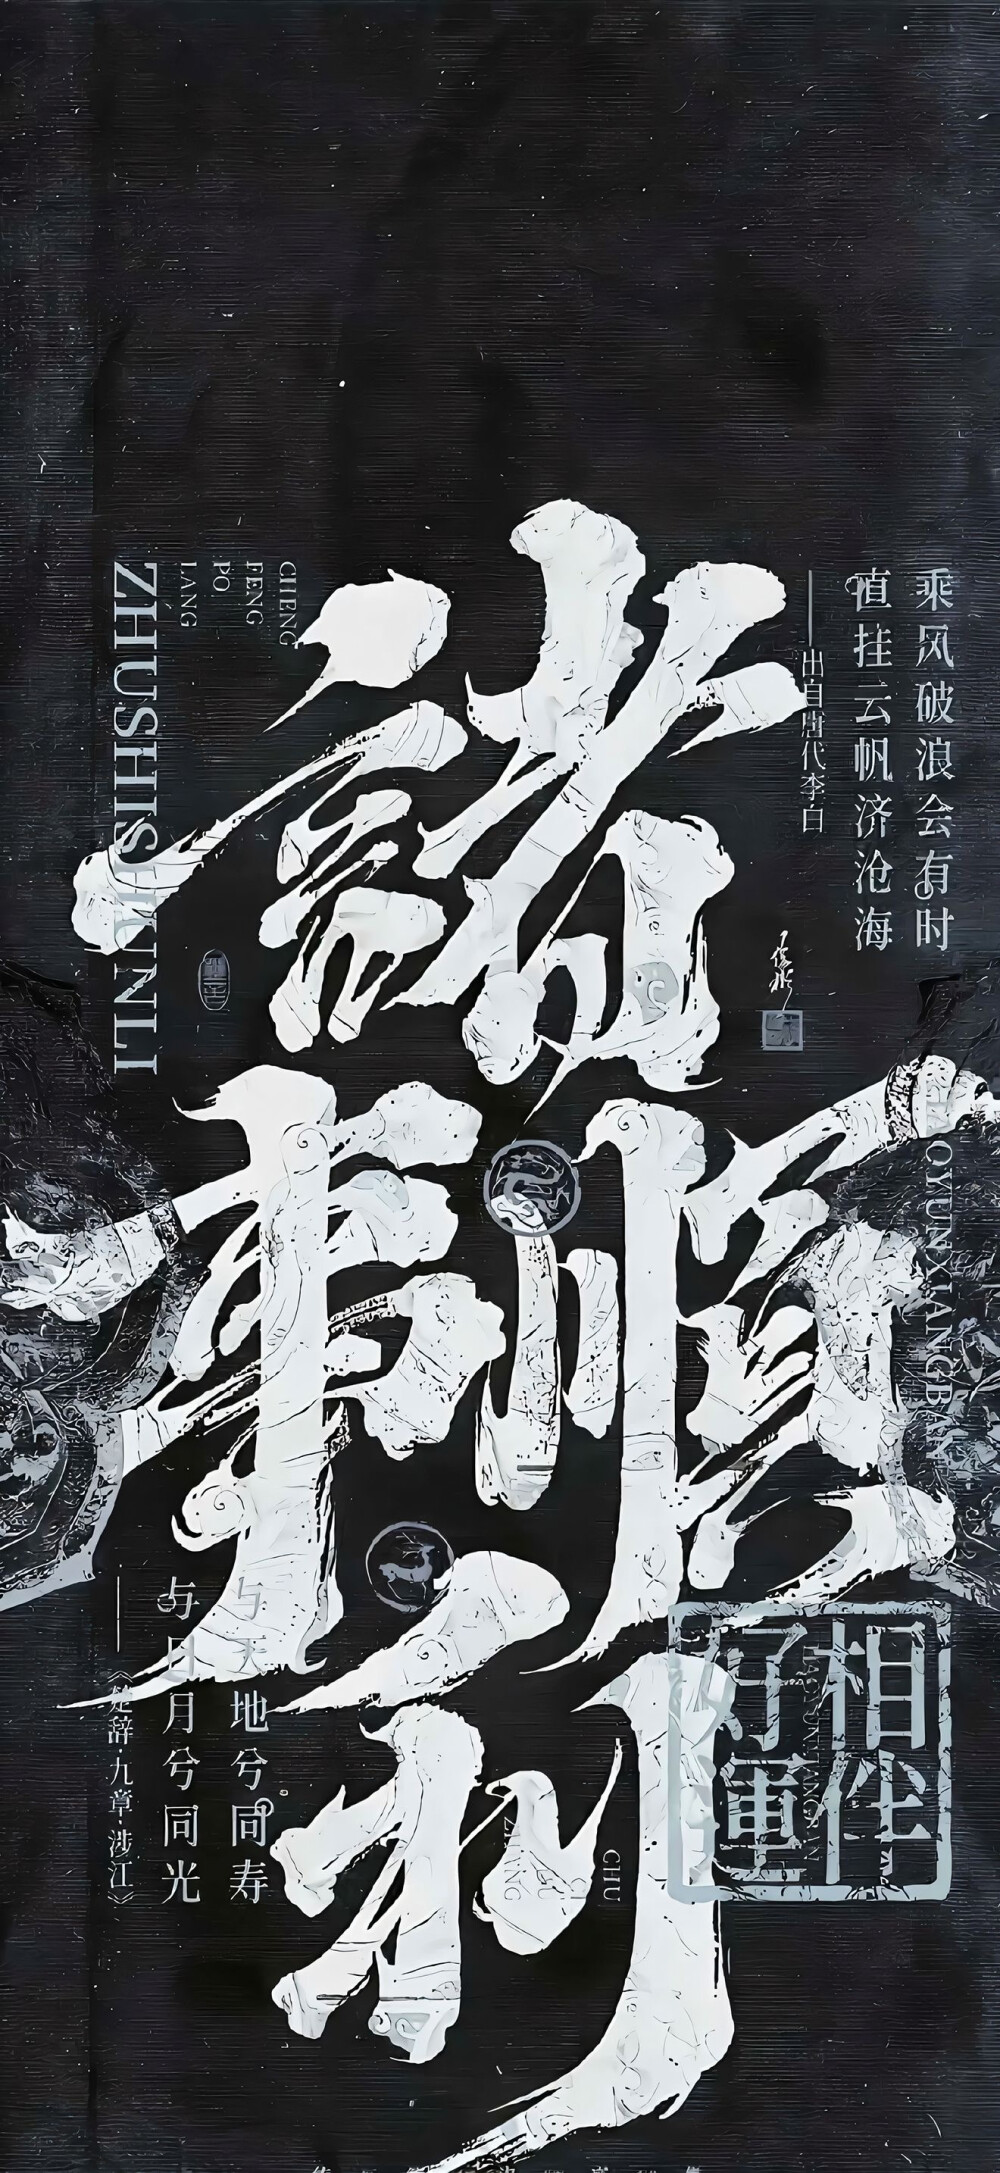 諸事順利
乘风破浪会有时
直挂云帆济沧海
——出自唐代李白
CHENG
FENG
PO
LANG
ZHUSHISHUNLI
OYUNXIANGBAN
相伴
好運
与天地兮同寿
与日月兮同光
——《楚辞·九章·涉江》
CHU